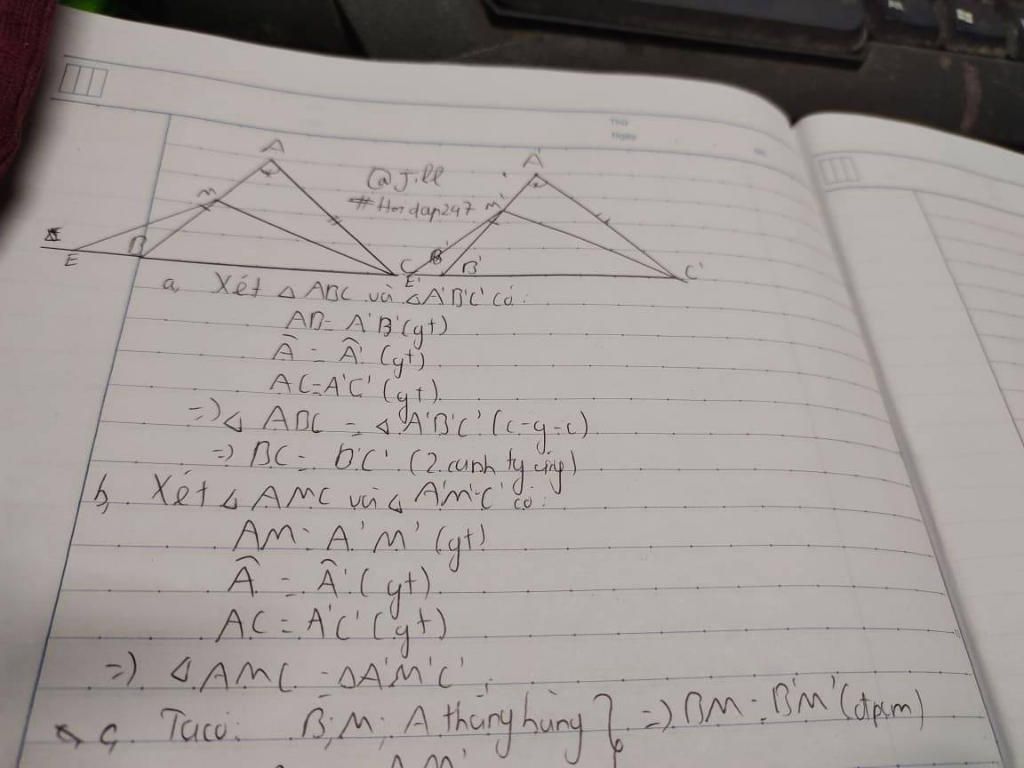 Thứ
Ngày
A
M
B
E
C
@J.ll
#Hoidap247
A'
M'
B'
E'
C'
a, Xét △ ABC và △A'B'C' có:
AB = A'B' (gt)
Â = Â' (gt)
AC = A'C' (gt)
=> △ ABC = △ A'B'C' (c-g-c)
=> BC = B'C' (2 cạnh tg ứng)
b, Xét △ AMC và △ A'M'C' có:
AM = A'M' (gt)
Â = Â' (gt)
AC = A'C' (gt)
=> △AMC = △A'M'C'
c, Ta có: B; M; A thẳng hàng } => BM = B'M' (đpcm)